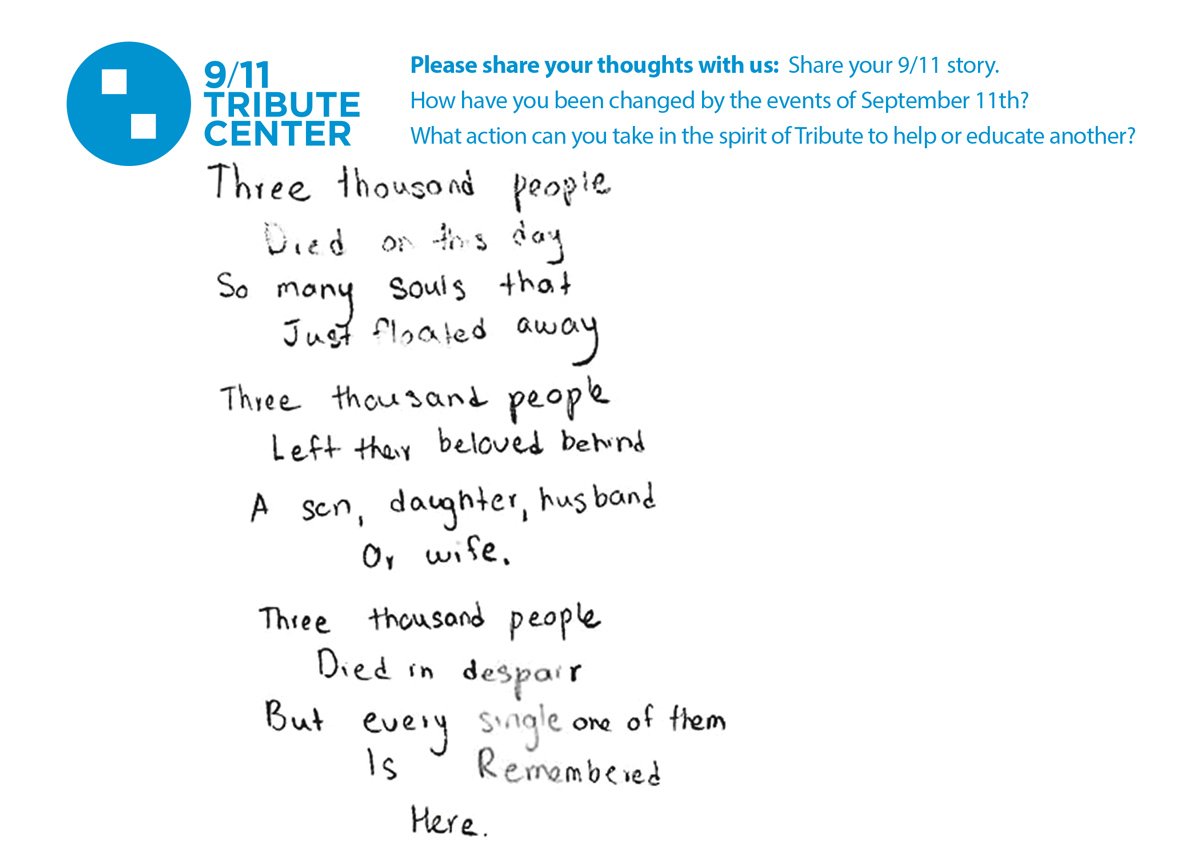 9/11
TRIBUTE
CENTER
Please share your thoughts with us: Share your 9/11 story.
How have you been changed by the events of September 11th?
What action can you take in the spirit of Tribute to help or educate another?
Three thousand people
Died on this day
So many souls that
Just floated away
Three thousand people
Left their beloved behind
A son, daughter, husband
Or wife.
Three thousand people
Died in despair
But every single one of them
Is Remembered
Here.